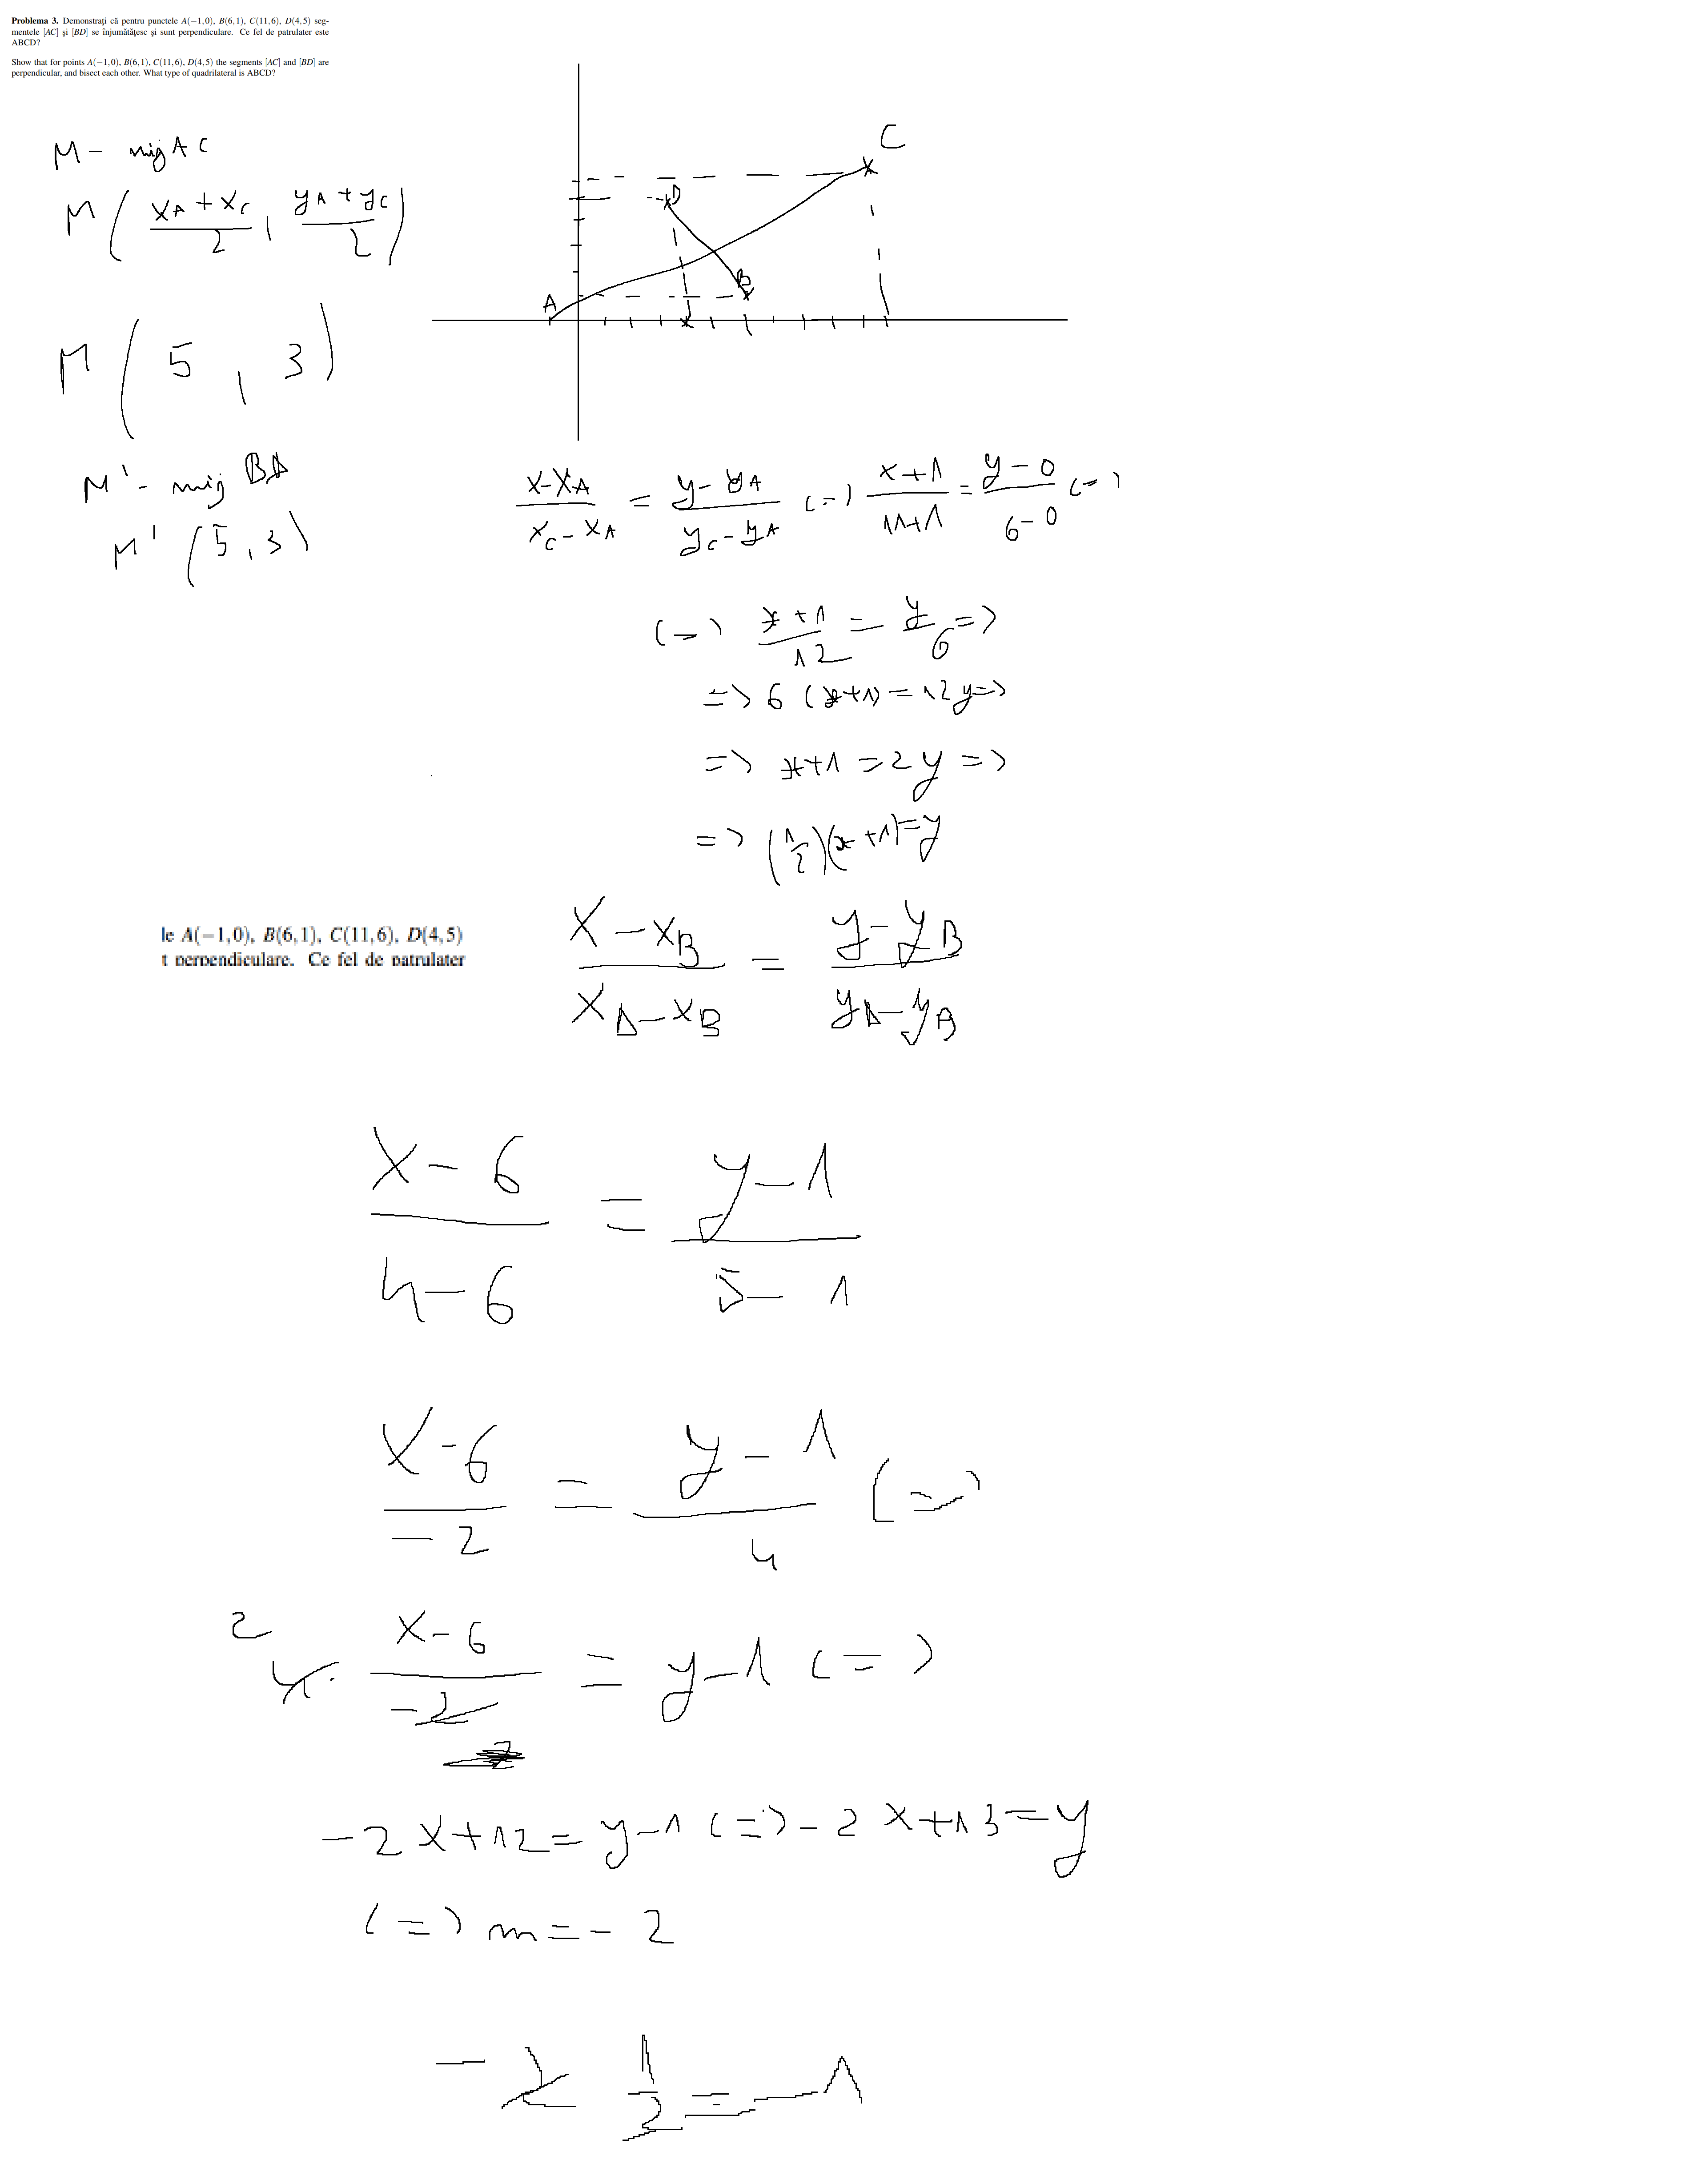 Problema 3. Demonstrați că pentru punctele A(−1,0), B(6,1), C(11,6), D(4,5) seg-
mentele [AC] și [BD] se înjumătățesc și sunt perpendiculare. Ce fel de patrulater este
ABCD?
Show that for points A(−1,0), B(6,1), C(11,6), D(4,5) the segments [AC] and [BD] are
perpendicular, and bisect each other. What type of quadrilateral is ABCD?
M - mij AC
M ( (xA + xC)/2 , (yA + yC)/2 )
M ( 5 , 3 )
M' - mij BD
M' ( 5 , 3 )
C
D
B
A
(x - xA)/(xC - xA) = (y - yA)/(yC - yA) (=) (x+1)/(11+1) = (y-0)/(6-0) (=)
(=) (x+1)/12 = y/6 =>
=> 6 (x+1) = 12y =>
=> x+1 = 2y =>
=> (1/2)(x+1) = y
le A(−1,0), B(6,1), C(11,6), D(4,5)
t perpendiculare. Ce fel de patrulater
(x - xB)/(xD - xB) = (y - yB)/(yD - yB)
(x - 6)/(4 - 6) = (y - 1)/(5 - 1)
(x - 6)/(-2) = (y - 1)/4 (=)
2 4· (x - 6)/(-2) = y - 1 (=)
-2x + 12 = y - 1 (=) -2x + 13 = y
(=) m = -2
-2 1/2 = -1